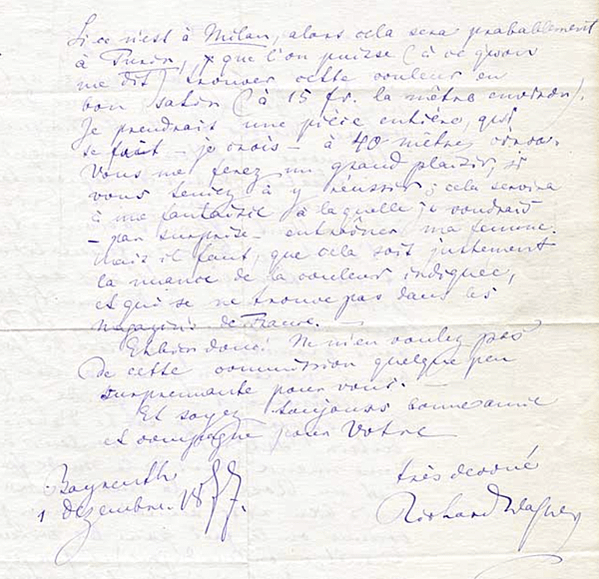 Si ce n'est à Milan, alors cela sera probablement
à Turin, que l'on puisse (à ce qu'on
me dit) trouver cette couleur en
bon satin (à 15 fr. la mètre environ).
Je prendrait une pièce entière, qui
se fait - je crois - à 40 mètres
Vous me ferez un grand plaisir, si
vous teniez à y réussir; cela servira
à une fantaisie à laquelle je voudrais
- par surprise - entraîner ma femme.
Mais il faut, que cela soit justement
la nuance de la couleur indiquée,
et qui se ne trouve pas dans les
magazins de France. —
Eh bien donc! N'm'en voulez pas
de cette commission quelque peu
surprenante pour vous. —
Et soyez toujours bonne amie
et compagne pour votre
très dévoué
Richard Wagner
Bayreuth
1 dezembre 1877.